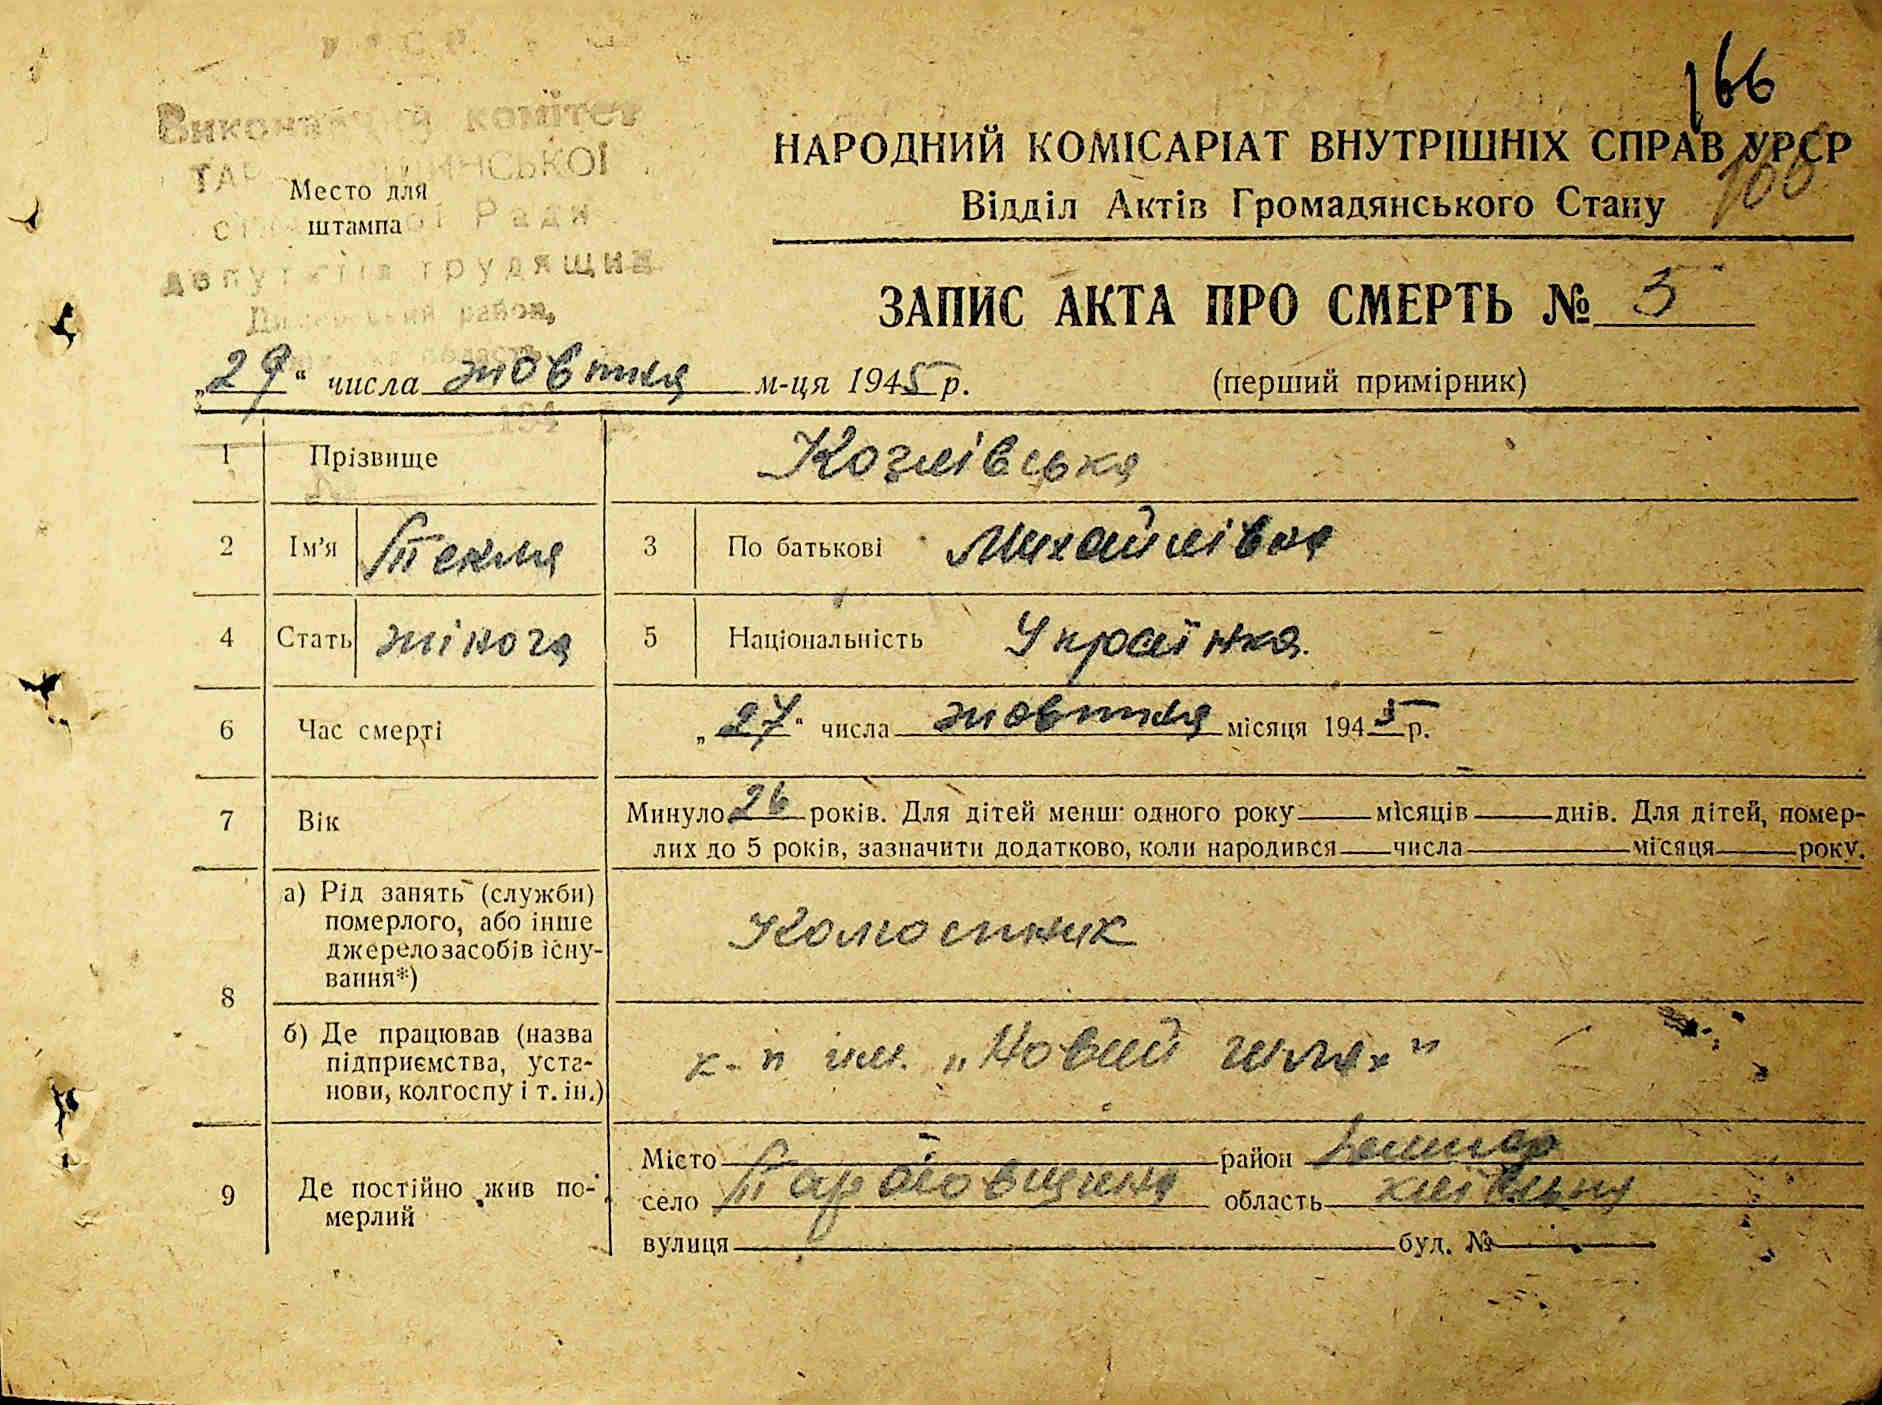 166
Виконавчий комітет
НАРОДНИЙ КОМІСАРІАТ ВНУТРІШНІХ СПРАВ УРСР
Место для
штампа
Ради
Відділ Актів Громадянського Стану
депутатів трудящих
район,
ЗАПИС АКТА ПРО СМЕРТЬ № 5
„29“ числа жовтня м-ця 1945 р.
(перший примірник)
194
1 Прізвище Козлівська
2 Ім'я Текля 3 По батькові Михайлівна
4 Стать жіноча 5 Національність Українка.
6 Час смерті „27“ числа жовтня місяця 1945 р.
7 Вік Минуло 26 років. Для дітей менш одного року місяців днів. Для дітей, помер-
лих до 5 років, зазначити додатково, коли народився числа місяця року.
8 а) Рід занять (служби)
померлого, або інше
джерело засобів існу-
вання*)
Колгоспник
б) Де працював (назва
підприємства, уста-
нови, колгоспу і т. ін.)
к-п им. „Новий шлях"
9 Де постійно жив по-
мерлий
Місто район
село область Київську
вулиця буд. №